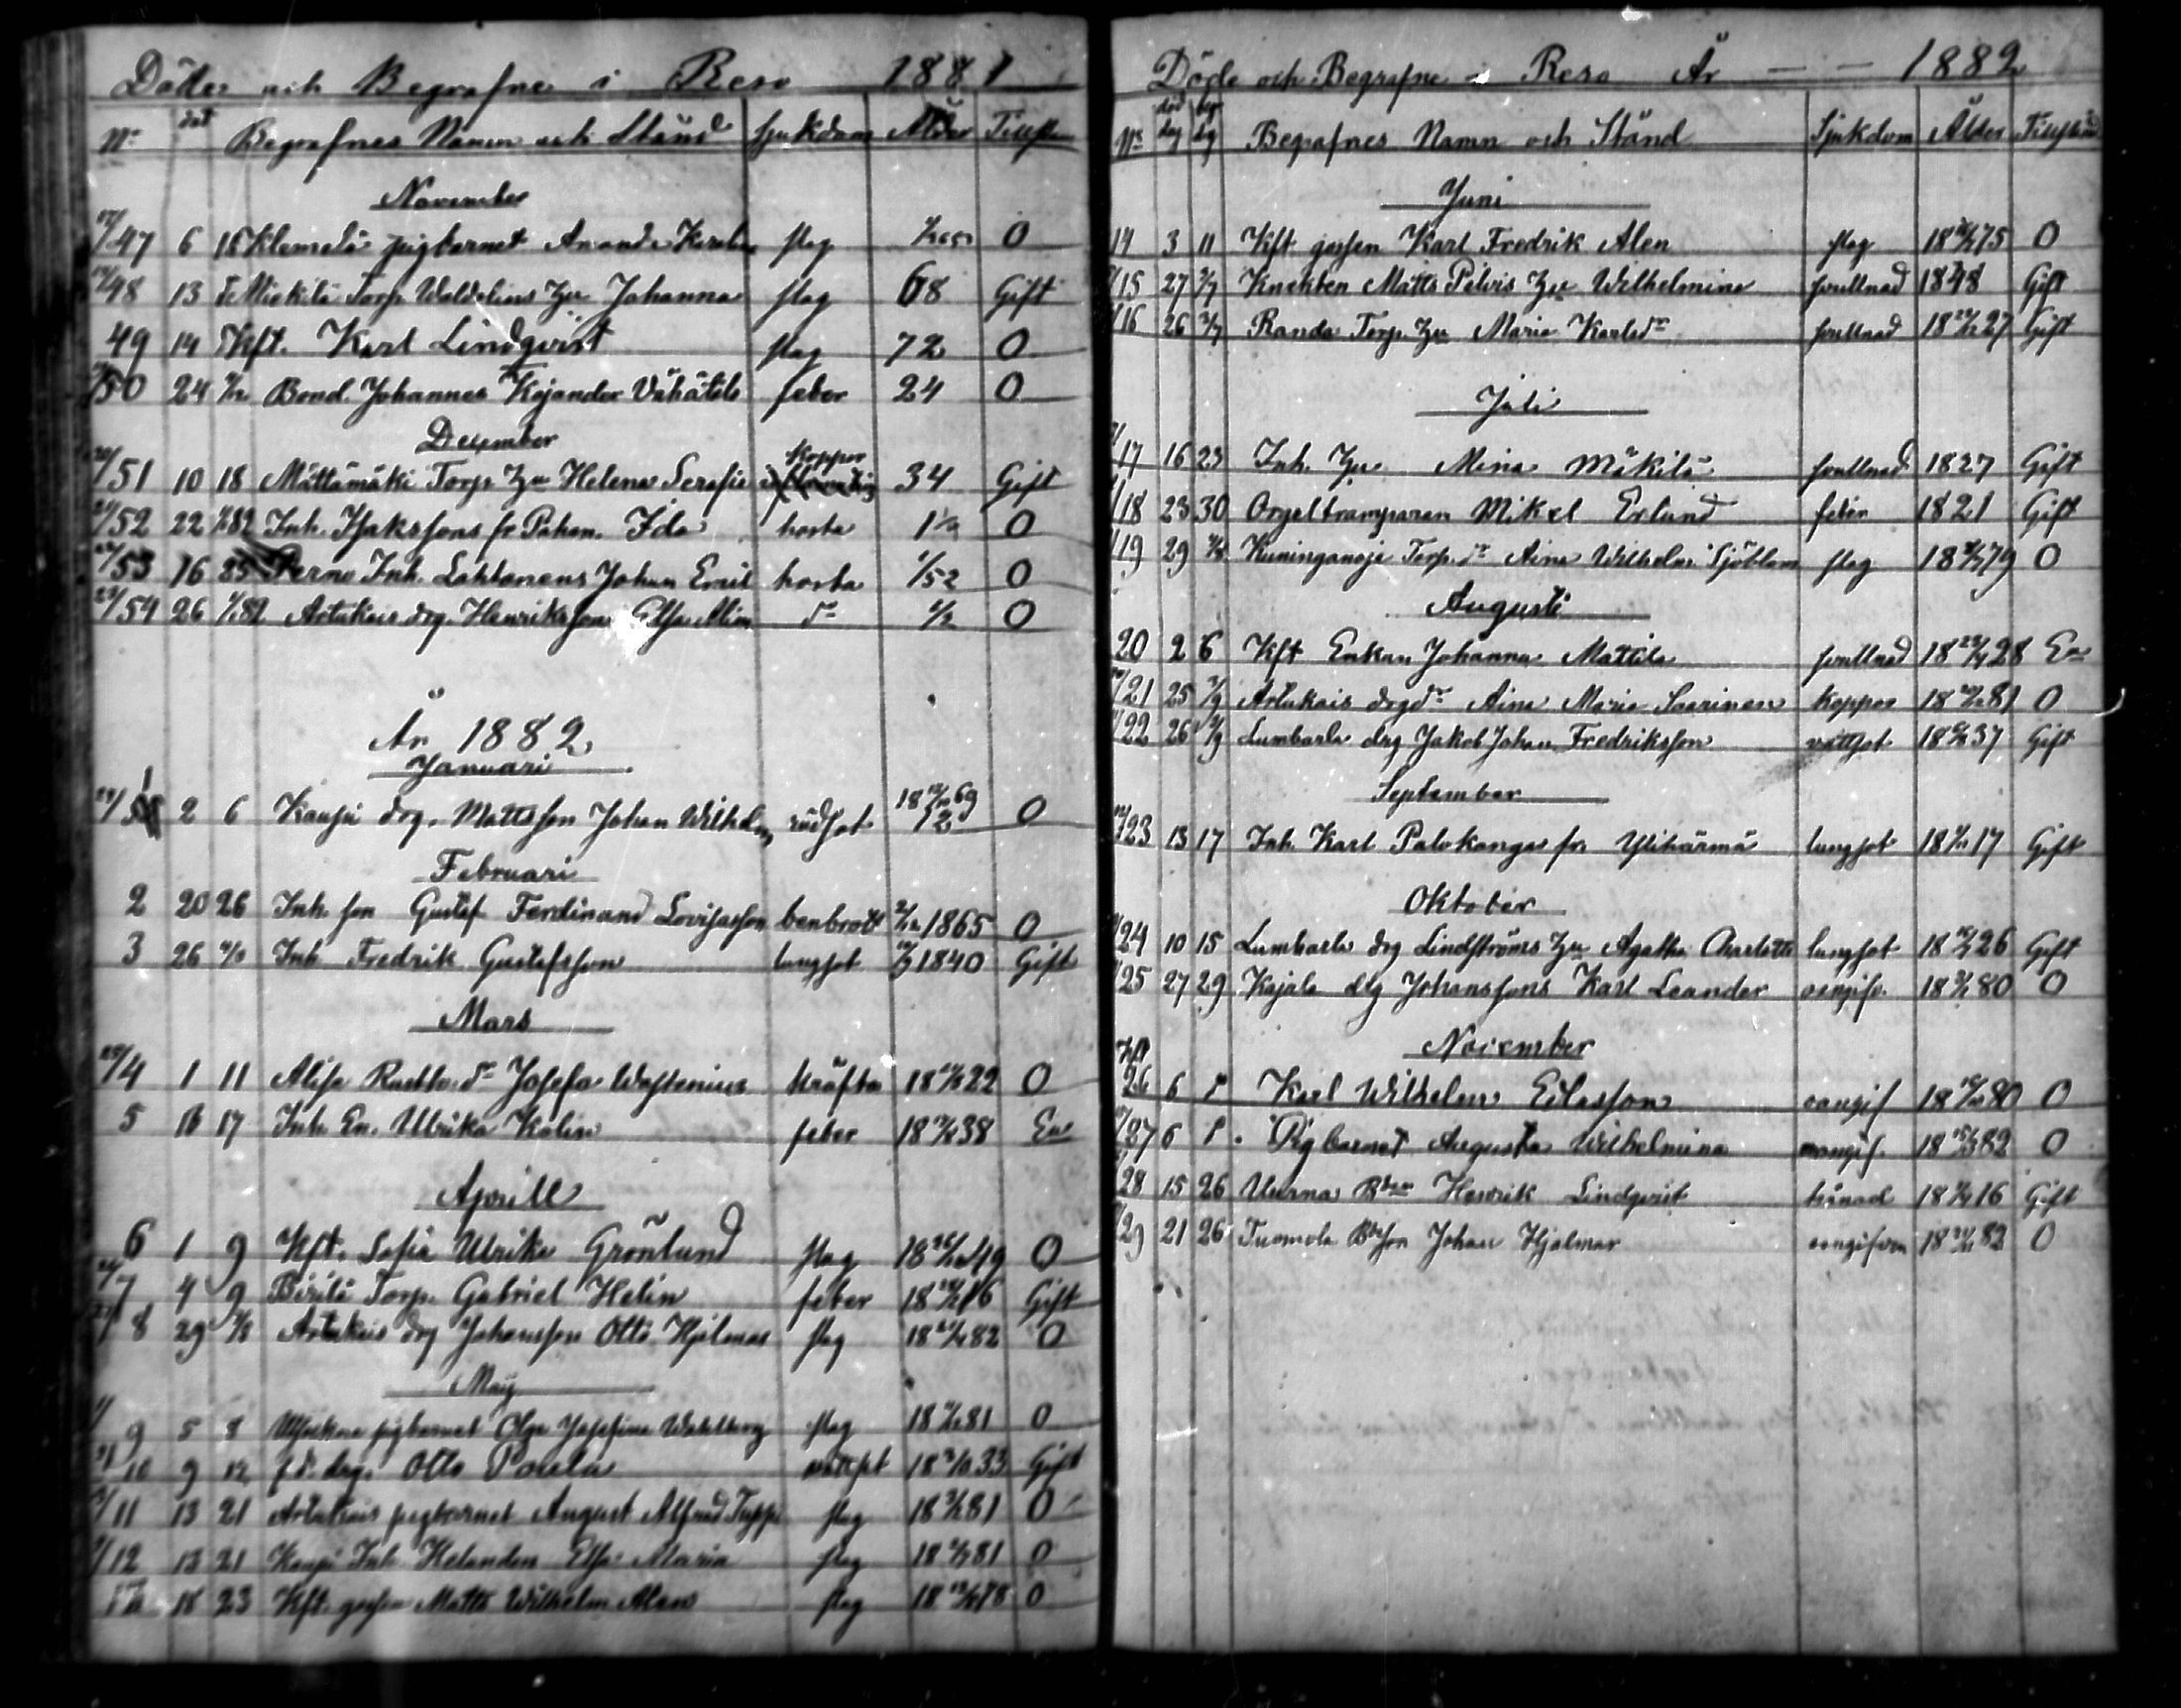 Döde och Begrafne i Reso 1881
No dat Begrafnes Namn och Stånd Sjukdom Ålder Tillst
November
47 6 18 Klemelä pigbarnet Amanda slag O
48 13 Mickilä Torp. Waldelius hu Johanna slag 68 Gift
49 14 Kft. Karl Lindqvist slag 72 O
50 24 Bond. Johannes Kojander Vähätalo feber 24 O
December
51 10 18 Mättämäki Torp hu Helena Serafie Koppor 34 Gift
52 22 Inh. Isakssons fr Pahan. Ida hosta O
53 16 Perno Inh. Lahtonens Johan Emil hosta 1/52 O
54 26 1/82 Artukais drg. Henriksson Elsa Alina do 1/2 O
År 1882
Januari
1 2 6 Kaupi drg. Mattsson Johan Wilhelm rödsot 69 O
Februari
2 20 26 Inh. son Gustaf Ferdinand Lovisasson benbrott 1865 O
3 26 Inh Fredrik Gustafsson lungsot 1840 Gift
Mars
4 1 11 Alisa Rustho. dr Josefa Wastenius kräfta 18 22 O
5 16 17 Inh. En. Ulrika Kalin feber 18 38 En
Aprill
6 1 9 Kft. Sofia Ulrika Grönlund slag 18 49 O
7 4 9 Torp. Gabriel Helin feber 18 16 Gift
8 29 Artukais drg Johansson Otto Hjalmar slag 18 82 O
Maij
9 5 8 pigbarnet Olga Josefina Wahlberg slag 18 81 O
10 9 12 f.d. drg. Otto Paula 18 33 Gift
11 13 21 Artukais pigbarnet August Alfred slag 18 81 O
12 13 21 Kaupi Inh. Helanden Elsa Maria slag 18 81 O
18 23 Kft. gossen Matts Wilhelm Alen slag 18 78 O
Döde och Begrafne i Reso År — — 1882
No död dag beg dg Begrafnes Namn och Stånd Sjukdom Ålder Tillstånd
Juni
14 3 11 Kft gossen Karl Fredrik Alen slag 18 75 O
15 27 2/7 Knekten Matts Pilvis hu Wilhelmina svullnad 1848 Gift
16 26 2/7 Randa Torp. hu Maria Karlsdr svullnad 18 27 Gift
Juli
17 16 23 Inh. hu Mina Mäkilä svullnad 1827 Gift
18 23 30 Orgeltramparen Mikel Erlund feber 1821 Gift
19 29 Kuninganoja Torp. dr Aina Wilhelm. Sjöblom slag 18 79 O
Augusti
20 2 6 Kft Enkan Johanna Mattila svullnad 18 28 En
21 25 Artukais drg dr Aina Maria Saarinen koppor 18 81 O
22 26 Lumbarla drg Jakob Johan Fredriksson vattsot 18 37 Gift
September
23 13 17 Inh. Karl Palokangas fr. Ylihärmä lungsot 18 17 Gift
Oktober
24 10 15 Lumbarla drg Lindströms hu Agatha Charlotta lungsot 18 26 Gift
25 27 29 Kajala drg Johanssons Karl Leander 18 80 O
November
26 6 Karl Wilhelm Eilasson oangif 18 80 O
27 6 Pigbarnet Augusta Wilhelmina oangif. 18 82 O
28 15 26 Henrik Lindqvist trånad 18 16 Gift
29 21 26 Tuomola Johan Hjalmar oangifven 18 82 O